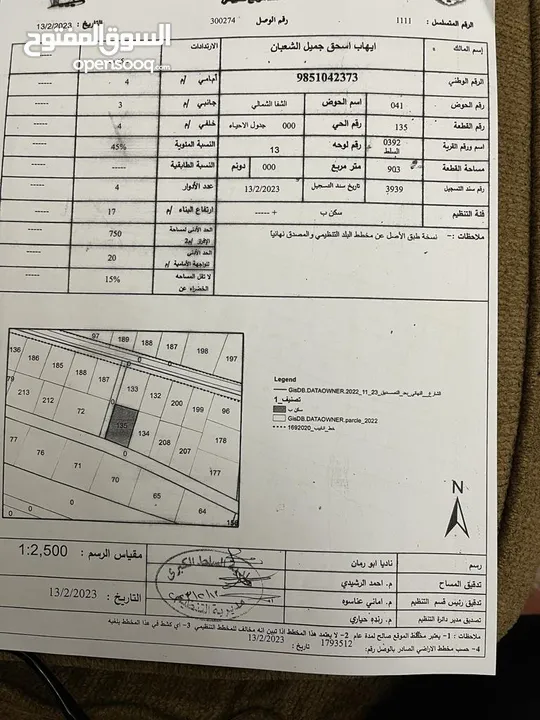 السوق المفتوح
opensooq
الرقم المتسلسل : 1111 رقم الوصل 300274 التاريخ : 13/2/2023
إسم المالك ايهاب اسحق جميل الشعبان الارتدادات
الرقم الوطني 9851042373 أمامي /م 4 -----
رقم الحوض 041 اسم الحوض الشفا الشمالي جانبي /م 3 -----
رقم القطعة 135 رقم الحي 000 جدول الاحياء خلفي /م 4 -----
اسم ورقم القرية 0392 السلط رقم لوحه 13 النسبة المئوية 45% -----
مساحة القطعة 903 متر مربع 000 دونم النسبة الطابقية ----- -----
رقم سند التسجيل 3939 تاريخ سند التسجيل 13/2/2023 عدد الأدوار 4 -----
فئة التنظيم سكن ب + ----- ارتفاع البناء /م 17 -----
ملاحظات :- نسخة طبق الأصل عن مخطط البلد التنظيمي والمصدق نهائيا
الحد الأدنى لمساحة الإفراز /م2 750 -----
الحد الأدنى للواجهة الأمامية /م 20 -----
لا تقل المساحه الخضراء عن 15% -----
97 189 188 187 198 197
136 186 185 187 133 132 199 96
213 212 72 135 134 208 200
77 76 71 70 65 64
Legend
GisDB.DATAOWNER.2022_11_23_الشارع
تصنيف_1
سكن ب
GisDB.DATAOWNER.parcle_2022
1692020
N
مقياس الرسم : 1:2,500
التاريخ : 13/2/2023
رسم ناديا ابو رمان
تدقيق المساح م. احمد الرشيدي
تدقيق رئيس قسم التنظيم م. اماني عناسوه
تصديق مدير دائرة التنظيم م. رنده حياري
ملاحظات :- 1- يعتبر مخطط الموقع صالح لمدة عام 2- لا يعتمد هذا المخطط اذا تبين انه مخالف للمخطط التنظيمي 3- اي كشط في هذا المخطط يلغيه
4- حسب مخطط الاراضي الصادر بالوصل رقم: 1793512 تاريخ : 13/2/2023